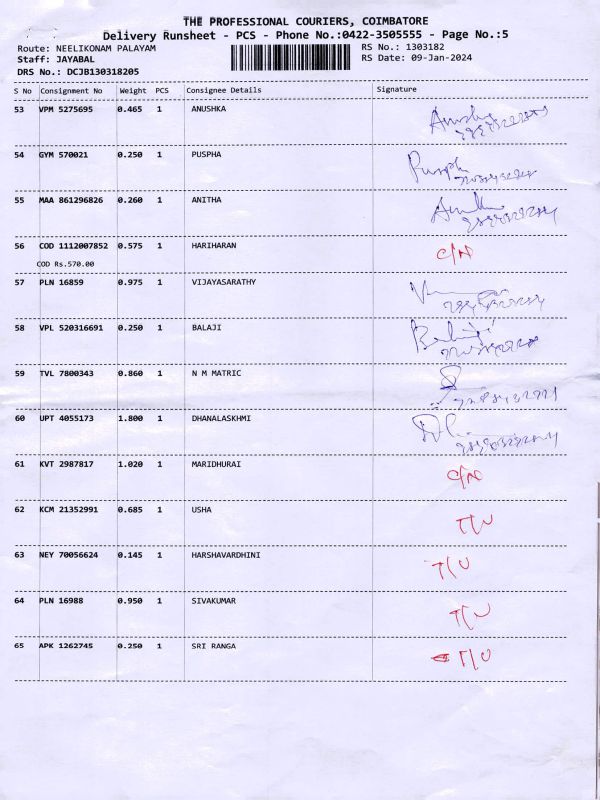 THE PROFESSIONAL COURIERS, COIMBATORE
Delivery Runsheet - PCS - Phone No.:0422-3505555 - Page No.:5
Route: NEELIKONAM PALAYAM
RS No.: 1303182
Staff: JAYABAL
RS Date: 09-Jan-2024
DRS No.: DCJB130318205
S No Consignment No Weight PCS Consignee Details Signature
53 VPM 5275695 0.465 1 ANUSHKA Anushka
54 GYM 570021 0.250 1 PUSPHA Puspha
55 MAA 861296826 0.260 1 ANITHA
56 COD 1112007852 0.575 1 HARIHARAN C/N
COD Rs.570.00
57 PLN 16859 0.975 1 VIJAYASARATHY
58 VPL 520316691 0.250 1 BALAJI Balaji
59 TVL 7800343 0.860 1 N M MATRIC
60 UPT 4055173 1.800 1 DHANALASKHMI
61 KVT 2987817 1.020 1 MARIDHURAI C/N
62 KCM 21352991 0.685 1 USHA T/U
63 NEY 70056624 0.145 1 HARSHAVARDHINI T/U
64 PLN 16988 0.950 1 SIVAKUMAR T/U
65 APK 1262745 0.250 1 SRI RANGA T/U